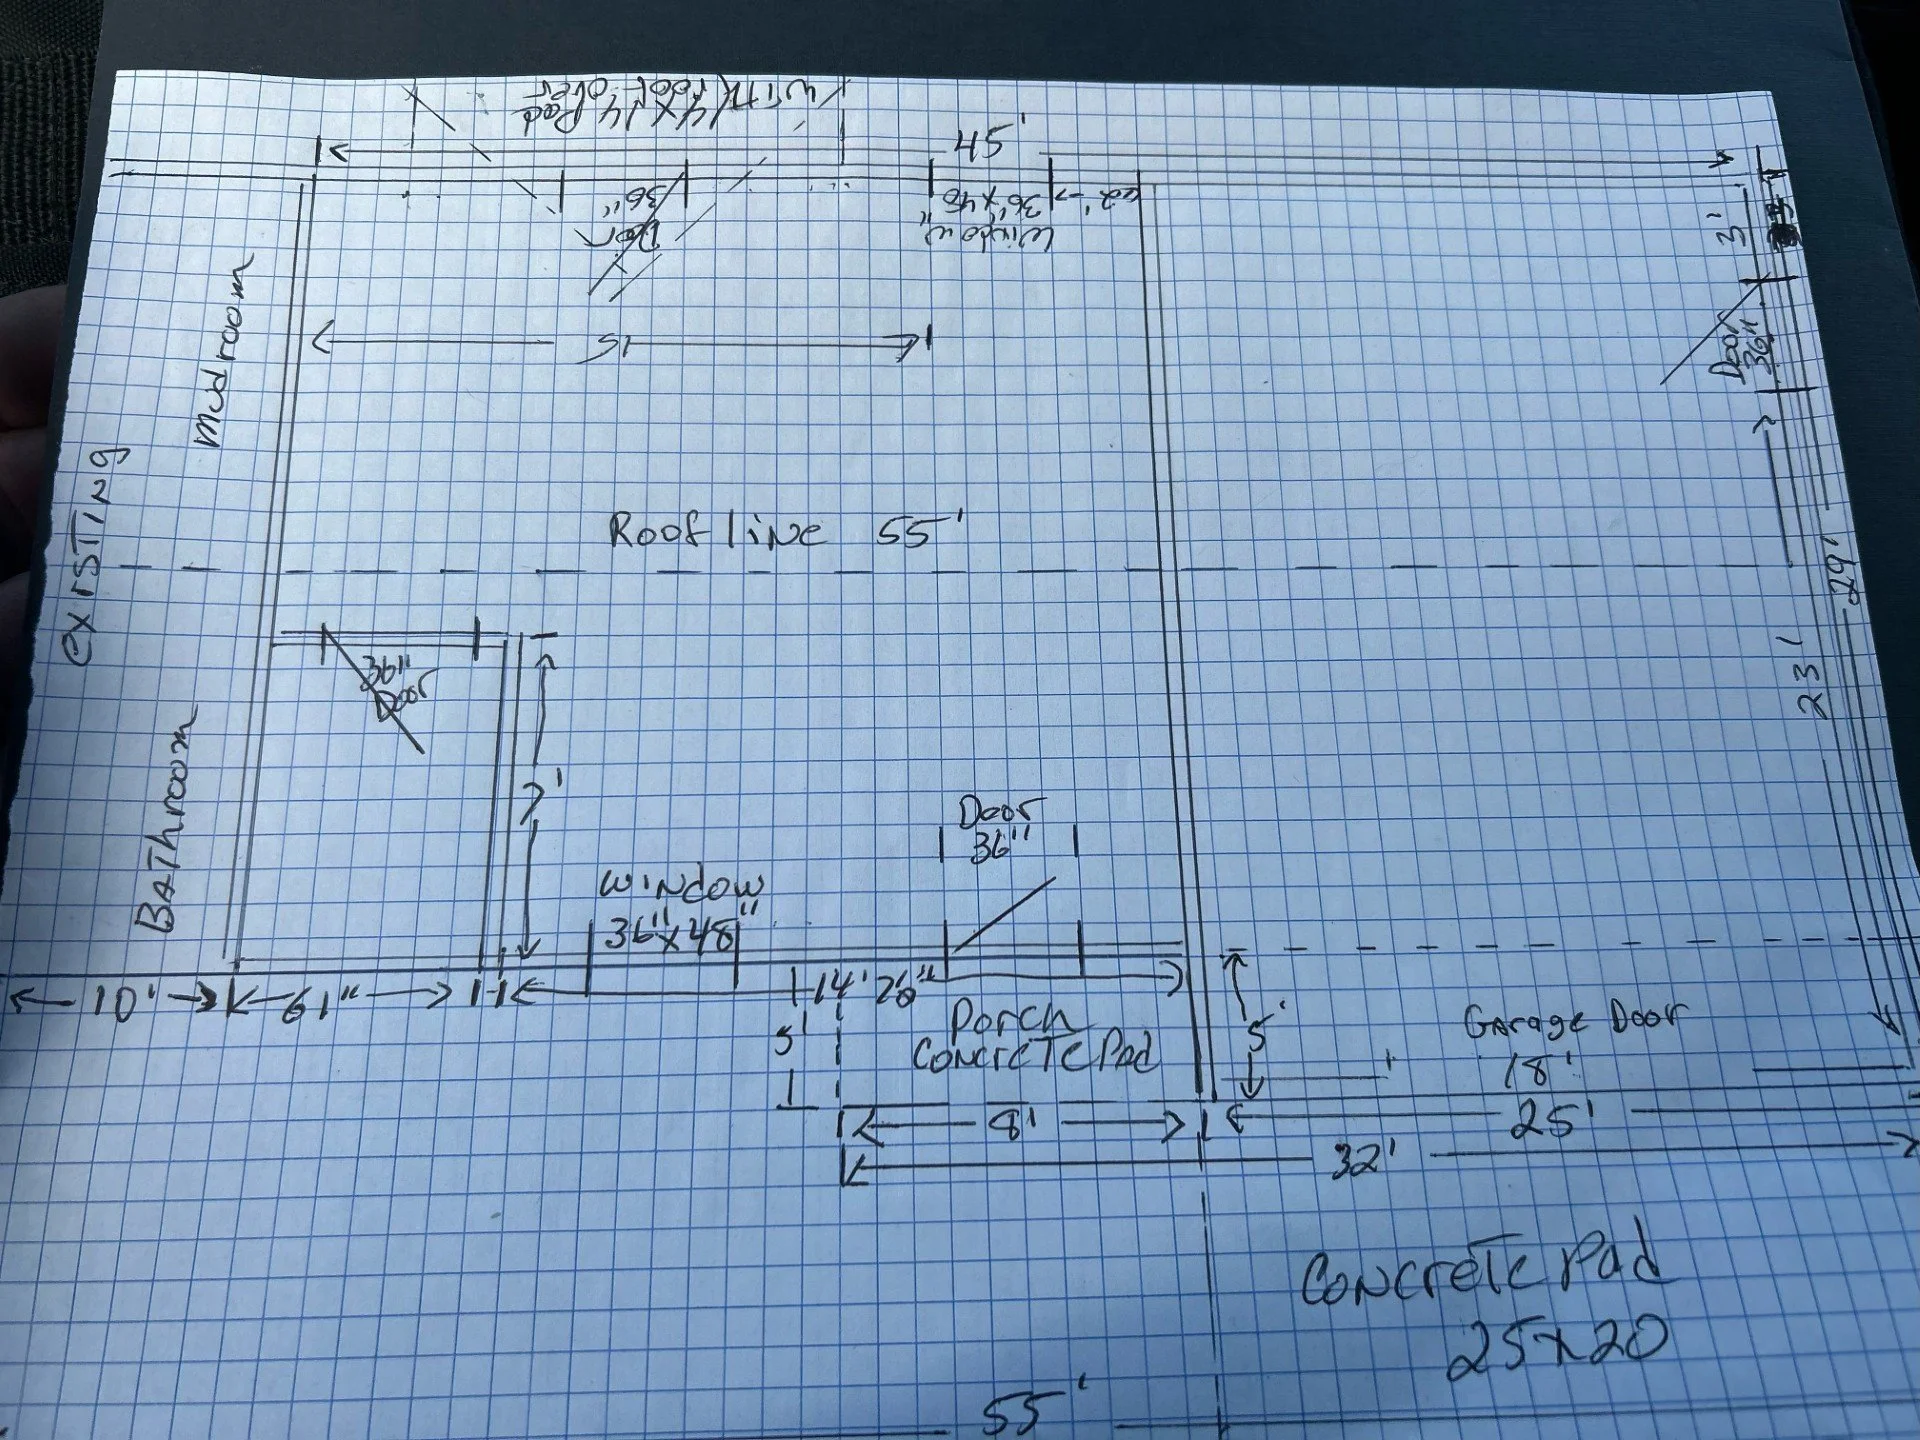 With
14 X 14 Pad
roof over
45'
36"
Door
36"x48"
Window
2'
3'
Door
36"
Mudroom
15
existing
Roof line 55'
29'
23'
36"
Door
7'
Bathroom
Door
36"
Window
36"x48"
10'
61"
14' 28"
5'
Porch
Concrete Pad
5'
Garage Door
18'
8'
25'
32'
Concrete Pad
25x20
55'